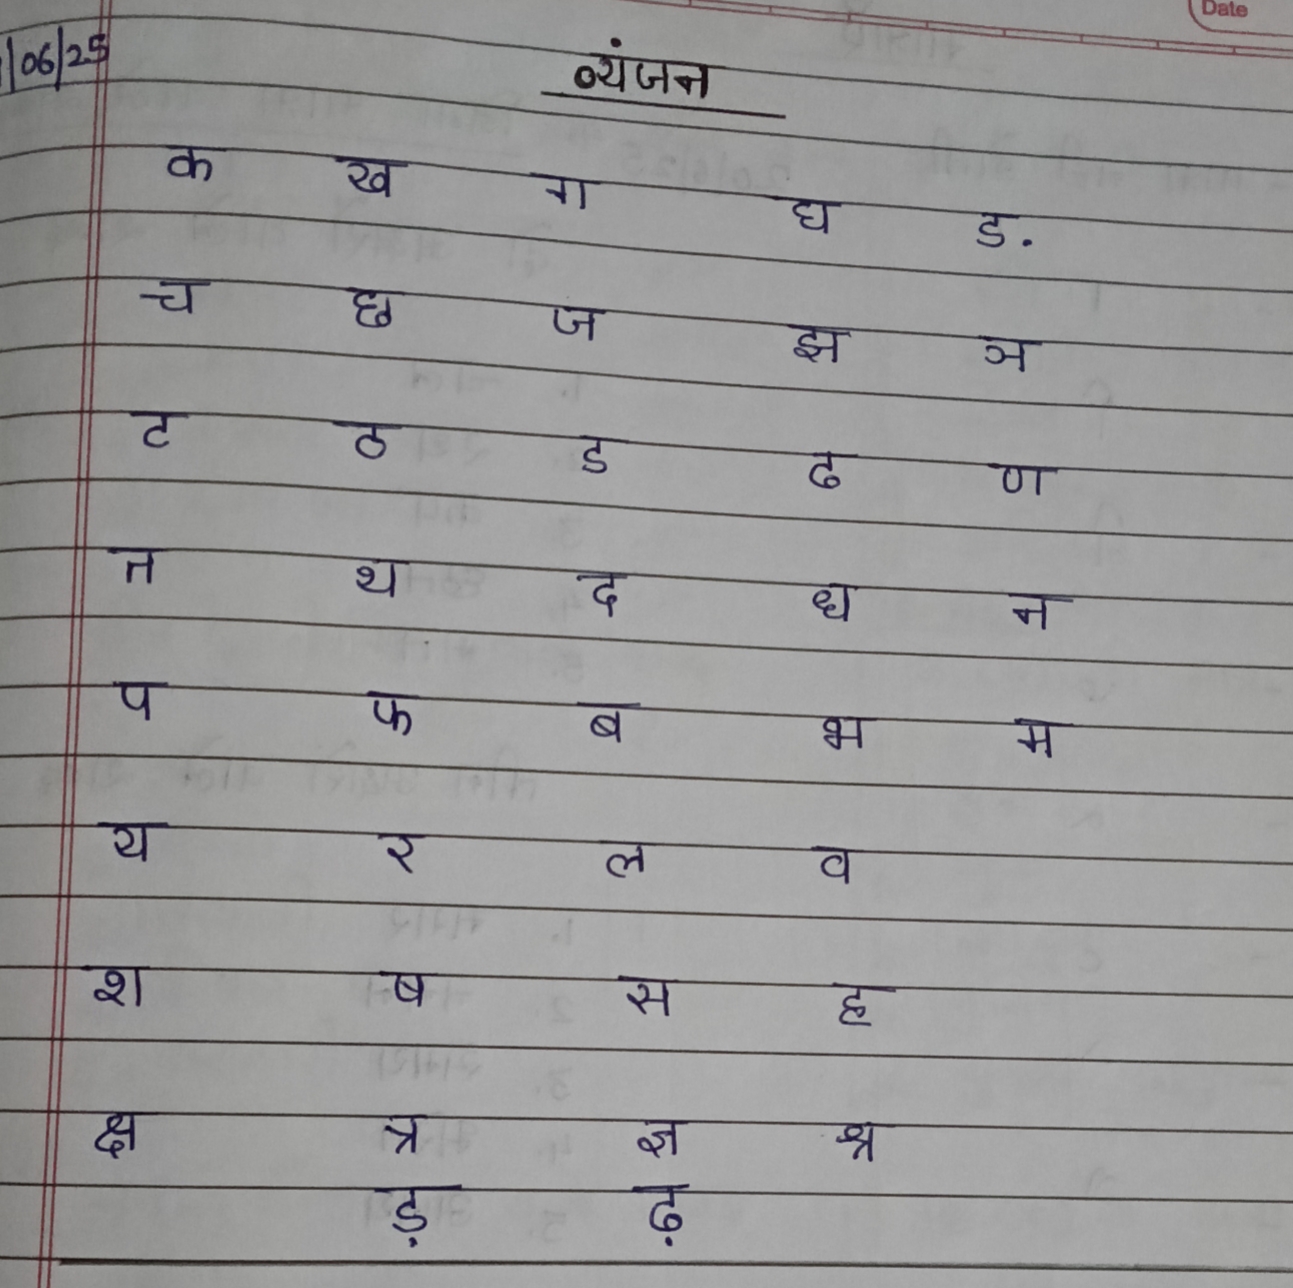 Date
/06/25
व्यंजन
क ख ग घ ङ
च छ ज झ ञ
ट ठ ड ढ ण
त थ द ध न
प फ ब भ म
य र ल व
श ष स ह
क्ष त्र ज्ञ श्र
ड़ ढ़